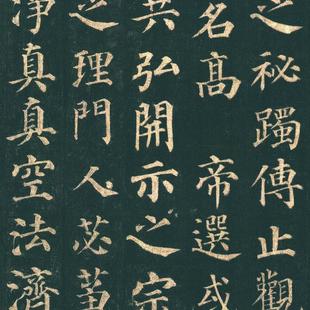 之秘躅傳止觀
名高 帝選或
共弘開示之宗
之理門人苾
淨真真空法濟